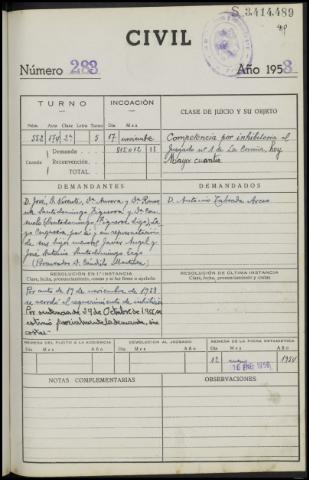 S 3.414.489
CIVIL
Número 283
Año 1953
TURNO
INCOACIÓN
CLASE DE JUICIO Y SU OBJETO
Núm. Año Clase Letra Turno Día Mes
552 574 2ª 5 17 noviembre
Demanda
Cuantía Reconvención
TOTAL
Competencia por inhibitoria al
Juzgado nº 1 de La Coruña, hoy
Mayor cuantía
DEMANDANTES
DEMANDADOS
D. José, D. Vicente, Dª Aurora y Dª
Santodomingo Figueroa, y Dª
por sí y en representación
de sus hijos menores Javier Angel y
José Antonio Santodomingo
(Procurador D.
D. Antonio Taboada Arceo
RESOLUCIÓN EN 1.ª INSTANCIA
Clase, fecha, pronunciamiento, costas y si fué firme o apelada
RESOLUCIÓN DE ÚLTIMA INSTANCIA
Clase, fecha, pronunciamiento y costas
Por auto de 17 de noviembre de 1953
se acordó el requerimiento de inhibición
Por sentencia de 29 de Octubre de 1955, se
estimó parcialmente la demanda, sin
costas
REMESA DEL PLEITO A LA AUDIENCIA
DEVOLUCIÓN AL JUZGADO
REMESA DE LA FICHA ESTADÍSTICA
Día Mes Año
Día Mes Año
Día Mes Año
12 enero 1956
16 ENE 1956
NOTAS COMPLEMENTARIAS
OBSERVACIONES